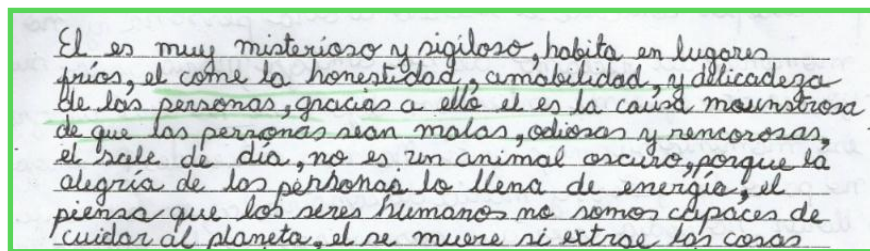 El es muy misterioso y sigiloso, habita en lugares
fríos, el come la honestidad, amabilidad, y delicadeza
de las personas, gracias a ello el es la causa mounstrosa
de que las personas sean malas, odiosas y rencorosas,
el sale de día, no es un animal oscuro, porque la
alegria de las personas lo llena de energía, el
piensa que los seres humanos no somos capaces de
cuidar al planeta, el se muere si extrae las cosas